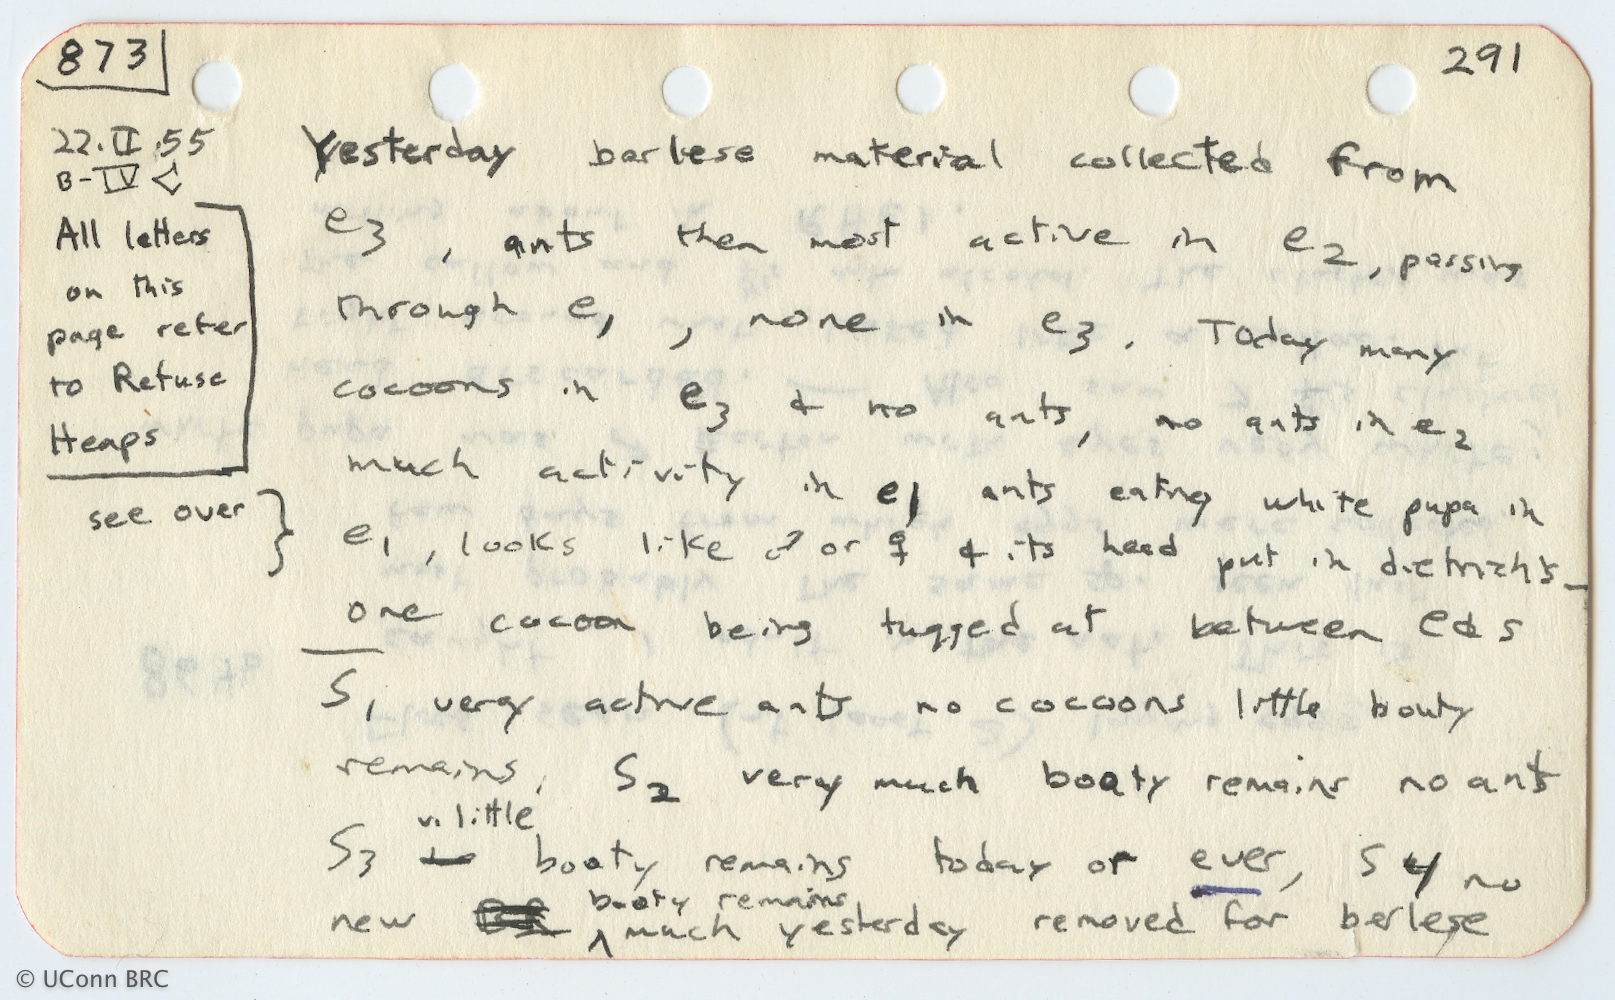 873
291
22.II.55
B-IV
All letters
on this
page refer
to Refuse
Heaps
see over }
Yesterday berlese material collected from
e3, ants then most active in e2, passing
through e1, none in e3. Today many
cocoons in e3 & no ants, no ants in e2
much activity in e1 ants eating white pupa in
e1, looks like ♂ or ☿ & its head put in dietrich's_
one cocoon being tugged at between e & s
S1 very active ants no cocoons little booty
remains, S2 very much booty remains no ants
v. little
S3 booty remains today or ever, S4 no
booty remains
new ^ much yesterday removed for berlese
© UConn BRC